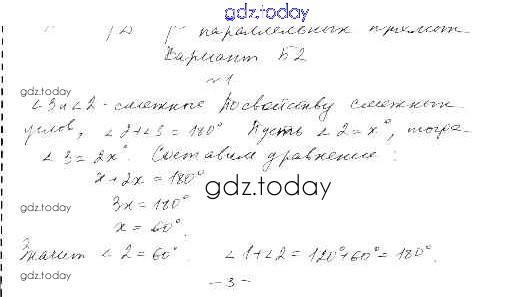 gdz.today
параллельных прямых
Вариант Б2
№1
gdz.today
∠3 и ∠2 - смежные По свойству смежных
углов, ∠2+∠3 = 180° Пусть ∠2 = x°, тогда
∠3 = 2x°. Составим уравнение:
x + 2x = 180°
gdz.today
3x = 180°
gdz.today
x = 60°
Значит ∠2 = 60°. ∠1+∠2 = 120°+60° = 180°.
gdz.today
- 3 -